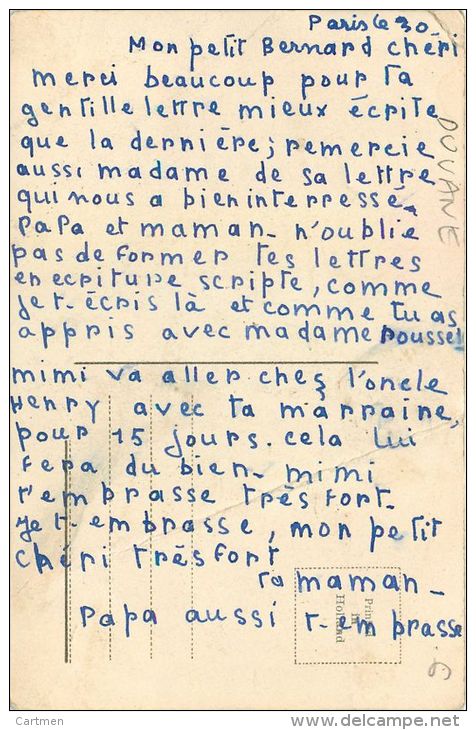 Paris le 30.
Mon petit Bernard chéri
merci beaucoup pour ta
gentille lettre mieux écrite
que la dernière; remercie
aussi madame de sa lettre
qui nous a bien interressé
Papa et maman - n'oublie
pas de former tes lettres
en ecriture scripte, comme
je t-écris là et comme tu as
appris avec madame roussel
mimi va aller ches l'oncle
Henry avec ta marraine,
pour 15 jours. cela lui
fera du bien - mimi
t'embrasse très fort -
je t-embrasse, mon petit
chéri très fort
ta maman -
Papa aussi t-embrasse
DOUANE
Printed
in
Holland
Cartmen
www.delcampe.net